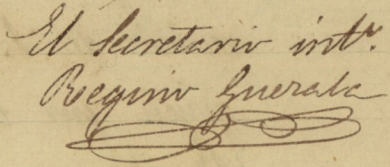 El Secretario intº.
Regino Guerala